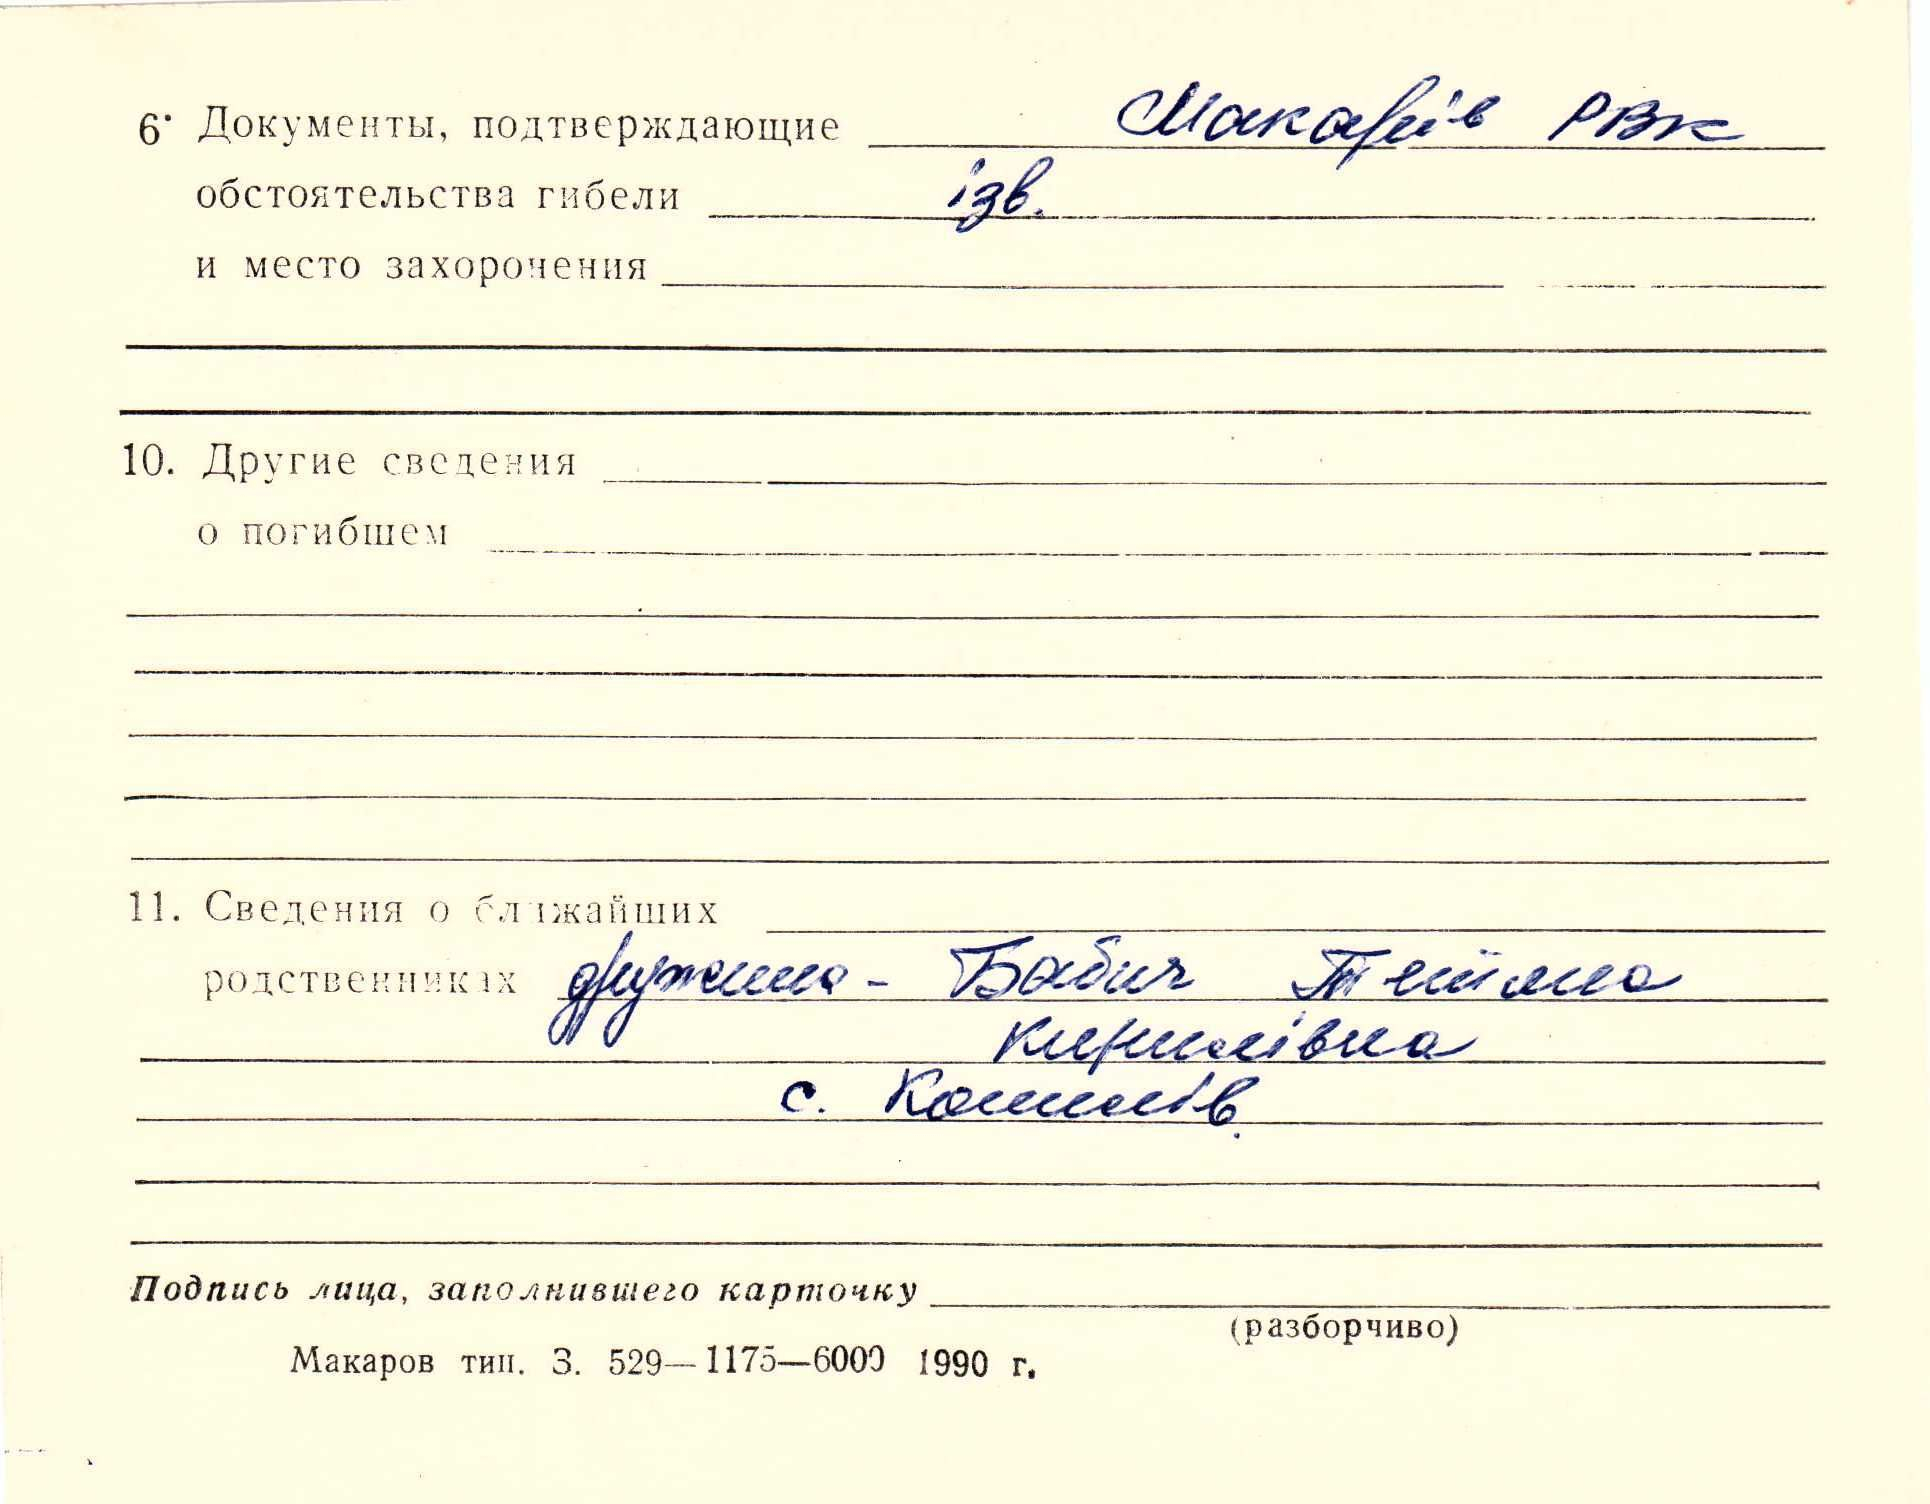 6. Документы, подтверждающие Макарів РВК
обстоятельства гибели ізв.
и место захоронения
10. Другие сведения
о погибшем
11. Сведения о ближайших
родственниках дружина - Бабич Тетяна
Кирилівна
с. Комишів.
Подпись лица, заполнившего карточку
(разборчиво)
Макаров тип. З. 529—1175—6000 1990 г.